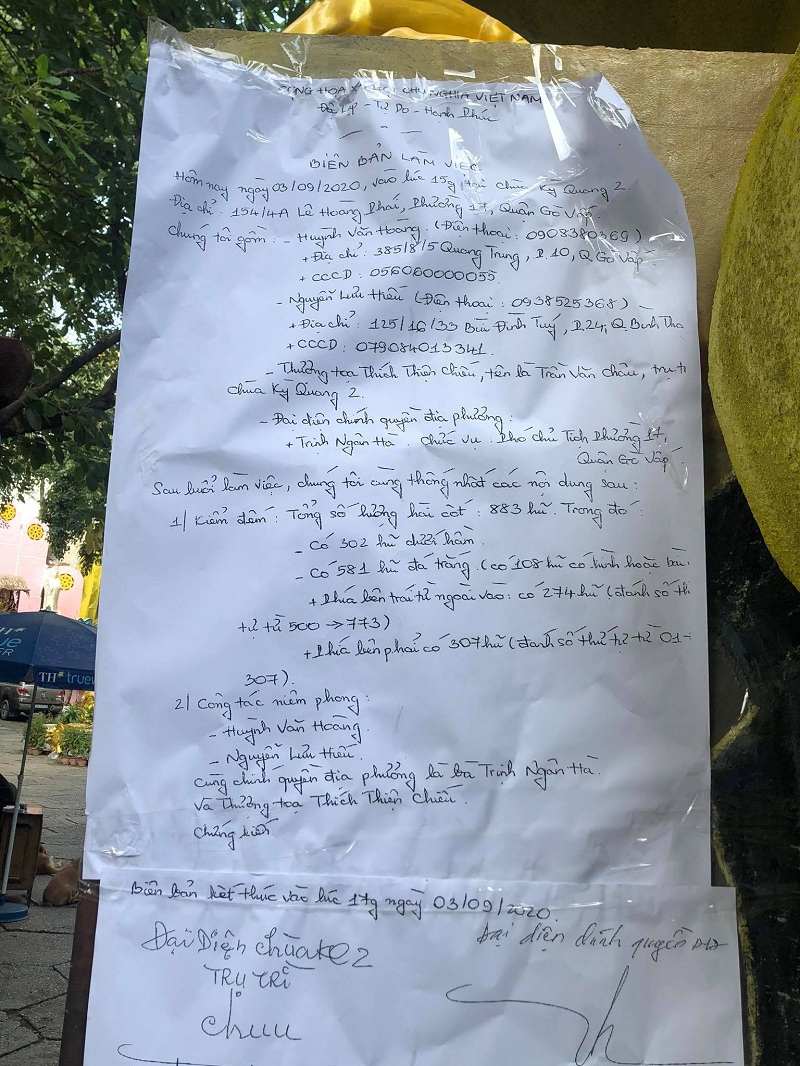 CỘNG HÒA XÃ HỘI CHỦ NGHĨA VIỆT NAM
Độc Lập - Tự Do - Hạnh Phúc
BIÊN BẢN LÀM VIỆC
Hôm nay ngày 03/09/2020, vào lúc 15g, tại chùa Kỳ Quang 2.
Địa chỉ: 154/4A Lê Hoàng Phái, Phường 17, Quận Gò Vấp
Chúng tôi gồm: - Huỳnh Văn Hoàng. (Điện thoại: 0908380369)
+ Địa chỉ: 385/8/5 Quang Trung, P.10, Q Gò Vấp.
+ CCCD: 056060000055
- Nguyễn Lưu Hiếu (Điện thoại: 0938525368)
+ Địa chỉ: 125/16/33 Bùi Đình Tuý, P.24, Q Bình Thạ
+ CCCD: 079084013341.
- Thượng toạ Thích Thiện Chiếu, tên là Trần Văn Châu, trụ tr
chùa Kỳ Quang 2.
- Đại diện chính quyền địa phương:
+ Trịnh Ngân Hà. Chức vụ: Phó chủ Tịch Phường 17,
Quận Gò Vấp.
Sau buổi làm việc, chúng tôi cùng thống nhất các nội dung sau:
1/ Kiểm đếm: Tổng số lượng hài cốt: 883 hũ. Trong đó:
- Có 302 hũ dưới hầm.
- Có 581 hũ đá trắng. (có 108 hũ có hình hoặc
+ Phía bên trái từ ngoài vào: có 274 hũ (đánh số th
tự từ 500 → 773)
+ Phía bên phải có 307 hũ (đánh số thứ tự từ 01-
307).
2/ Công tác niêm phong:
- Huỳnh Văn Hoàng.
- Nguyễn Lưu Hiếu.
cùng chính quyền địa phương là bà Trịnh Ngân Hà.
Và Thượng toạ Thích Thiện Chiếu.
Chứng kiến
Biên bản kết thúc vào lúc 17g ngày 03/09/2020.
Đại Diện chùa KQ2
Đại diện chính quyền
TRỤ TRÌ
TH true